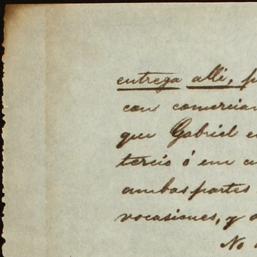 entrega alli, p
con comercian
que Gabriel e
tercio ó em c
ambas partes
vocasiones, y d
No